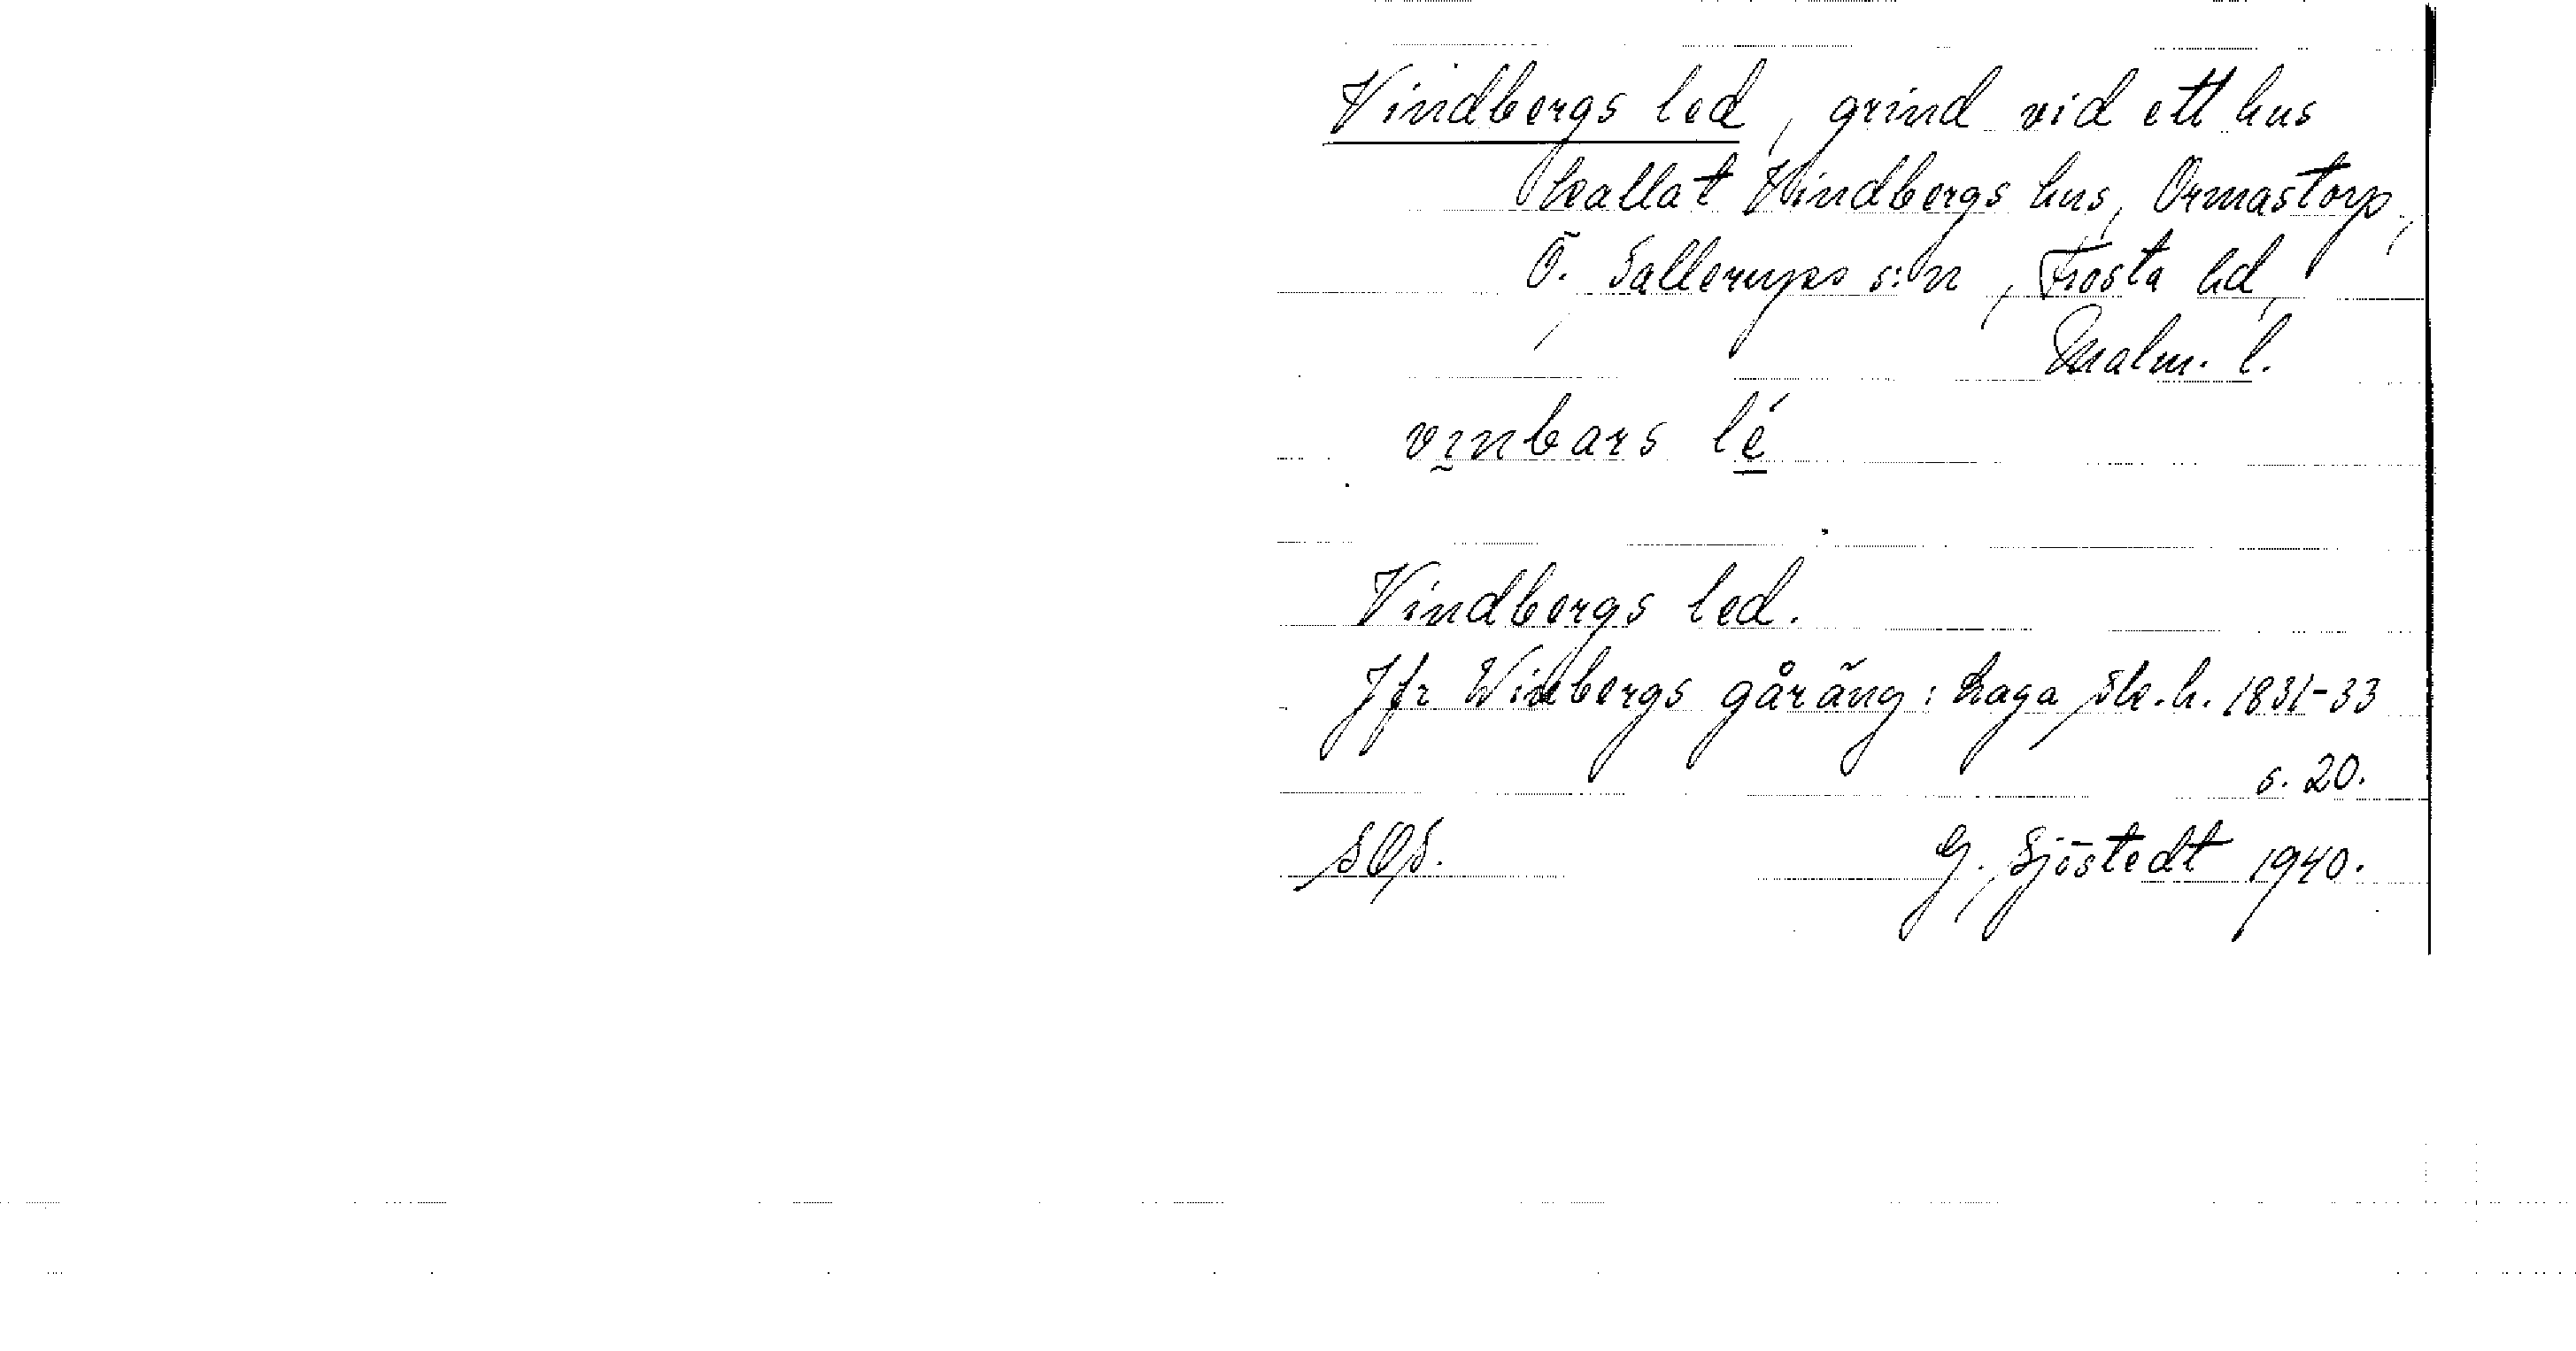 Vindbergs led, grind vid ett hus
kallat Vindbergs hus, Ormastorp,
Ö. Sallerups s:n, Frosta hd,
Malm. l.
vɪnbars lé
Vindbergs led.
Jfr Winbergs gåräng: Laga sk.h. 1831-33
s. 20.
SOS.
G. Sjöstedt 1940.